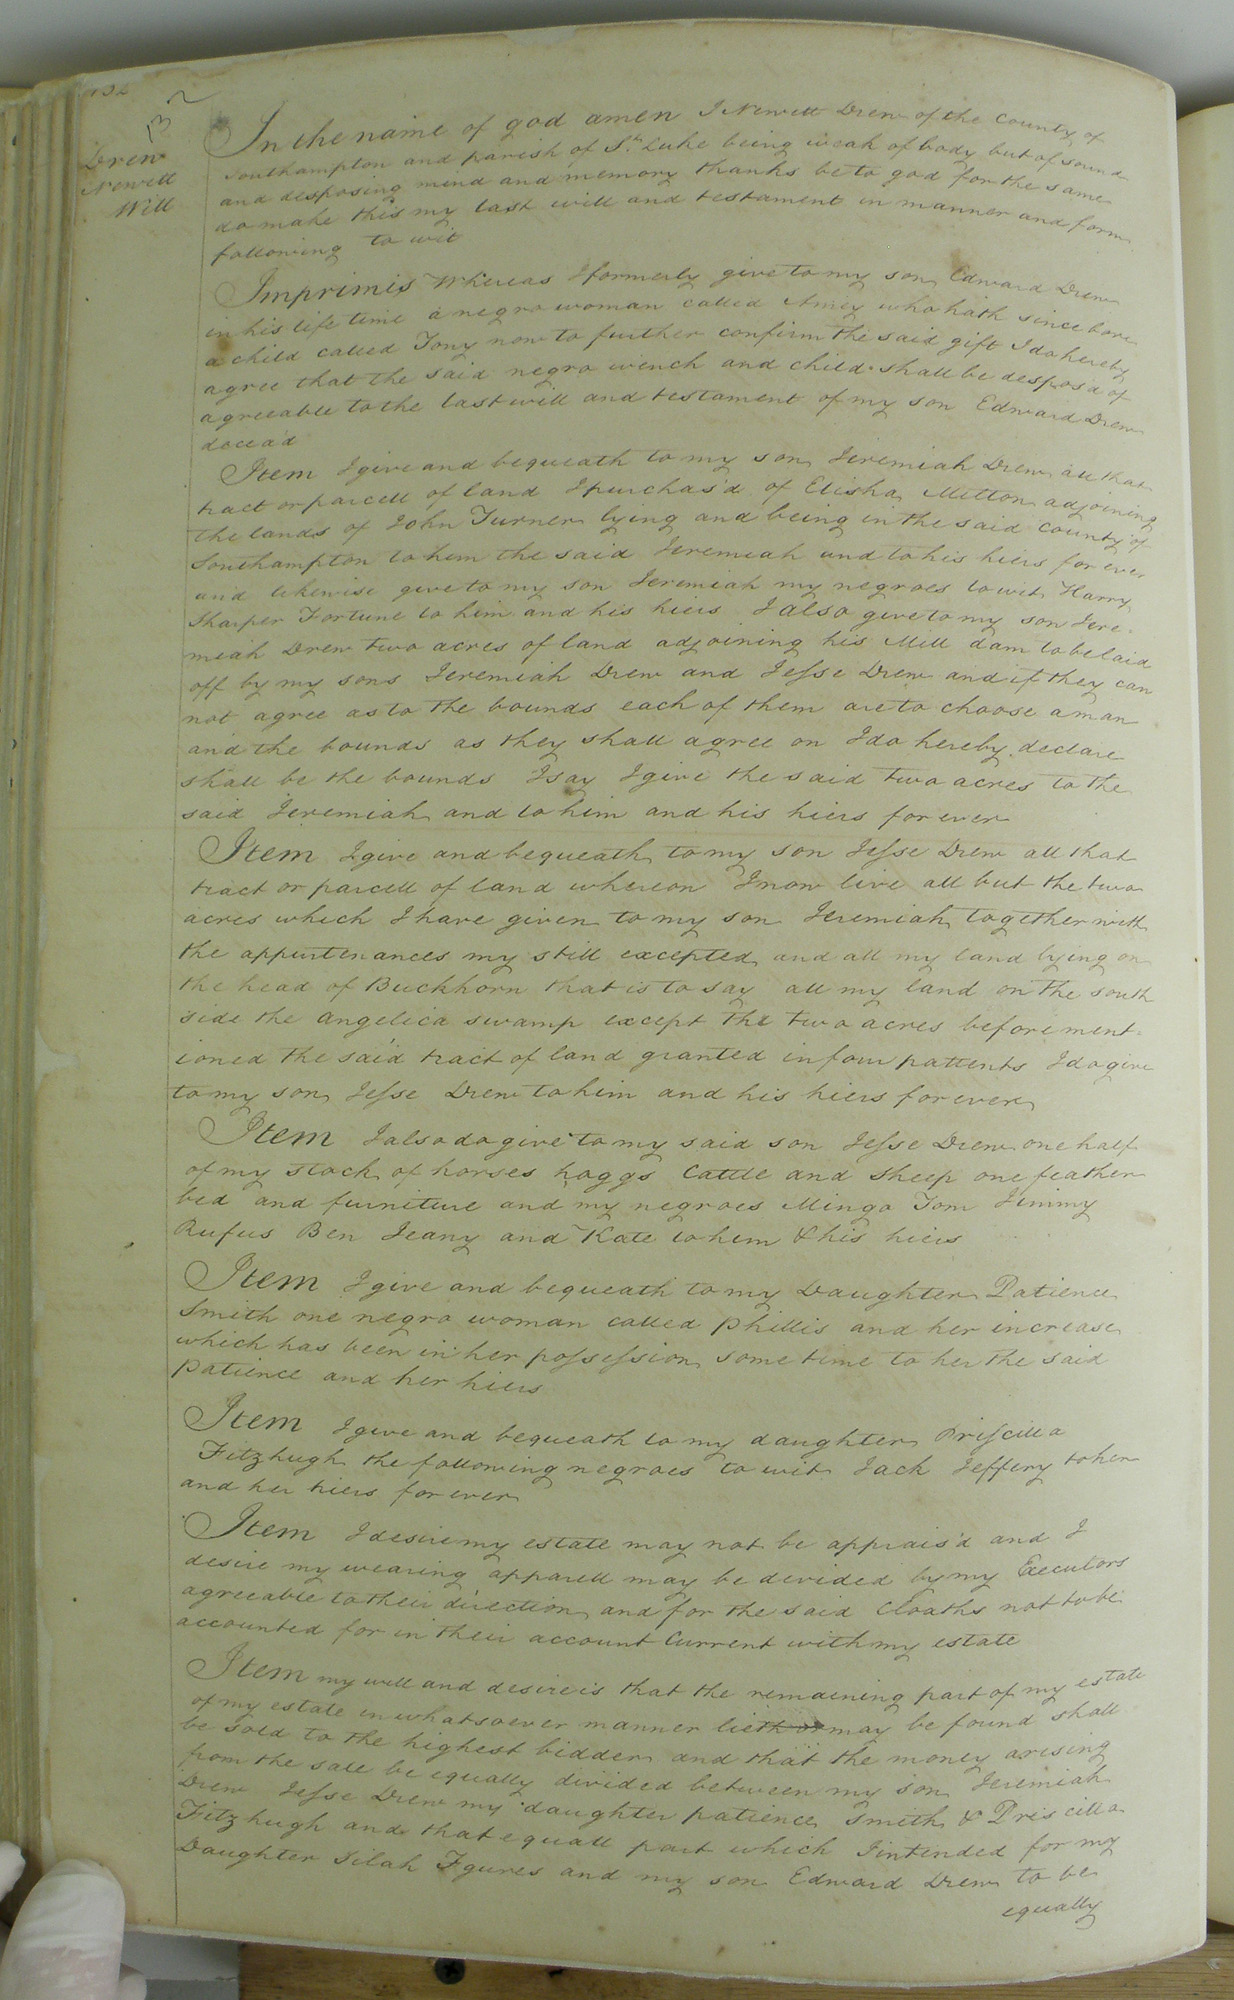 132
132
Drew
Newitt
Will
In the name of god amen I Newitt Drew of the County of
Southampton and parish of St. Luke being weak of body but of sound
and desposing mind and memory thanks be to god for the same
do make this my last will and testament in manner and form
following to wit
Imprimis Whereas I formerly give to my son Edward Drew
in his life time a negro woman called Amey who hath since bore
a child called Tony now to further confirm the said gift I do hereby
agree that the said negro wench and child shall be despos'd of
agreeable to the last will and testament of my son Edward Drew
decea'd
Item I give and bequeath to my son Jeremiah Drew all that
tract or parcell of land I purchas'd of Elisha Milton adjoining
the lands of John Turner lying and being in the said County of
Southampton to him the said Jeremiah and to his hiers for ever
and likewise give to my son Jeremiah my negroes to wit Harry
Sharper Fortune to him and his hiers I also give to my son Jere-
miah Drew two acres of land adjoining his Mill dam to be laid
off by my sons Jeremiah Drew and Jesse Drew and if they can
not agree as to the bounds each of them are to choose a man
and the bounds as they shall agree on I do hereby declare
shall be the bounds I say I give the said two acres to the
said Jeremiah and to him and his hiers for ever
Item I give and bequeath to my son Jesse Drew all that
tract or parcell of land whereon I now live all but the two
acres which I have given to my son Jeremiah together with
the appurtenances my still excepted and all my land lying on
the head of Buckhorn that is to say all my land on the south
side the angelica swamp except the two acres before ment-
ioned the said tract of land granted in four pattents I do give
to my son Jesse Drew to him and his hiers for ever
Item I also do give to my said son Jesse Drew one half
of my stock of horses hoggs Cattle and Sheep one feather
bed and furniture and my negroes Mingo Tom Jimmy
Rufus Ben Jeany and Kate to him & his hiers
Item I give and bequeath to my Daughter Patience
Smith one negro woman called Phillis and her increase
which has been in her possession some time to her the said
Patience and her hiers
Item I give and bequeath to my daughter Priscilla
Fitzhugh the following negroes to wit Jack Jeffery to her
and her hiers for ever
Item I desire my estate may not be apprais'd and I
desire my wearing apparell may be devided by my Executors
agreeable to their direction and for the said Cloaths not to be
accounted for in their account Current with my estate
Item my will and desire is that the remaining part of my estate
of my estate in whatsoever manner lieth or may be found shall
be sold to the highest bidder and that the money arising
from the sale be equally divided between my son Jeremiah
Drew Jesse Drew my daughter patience Smith & Priscilla
Fitzhugh and that equall part which I intended for my
Daughter Silah Fgures and my son Edward Drew to be
equally